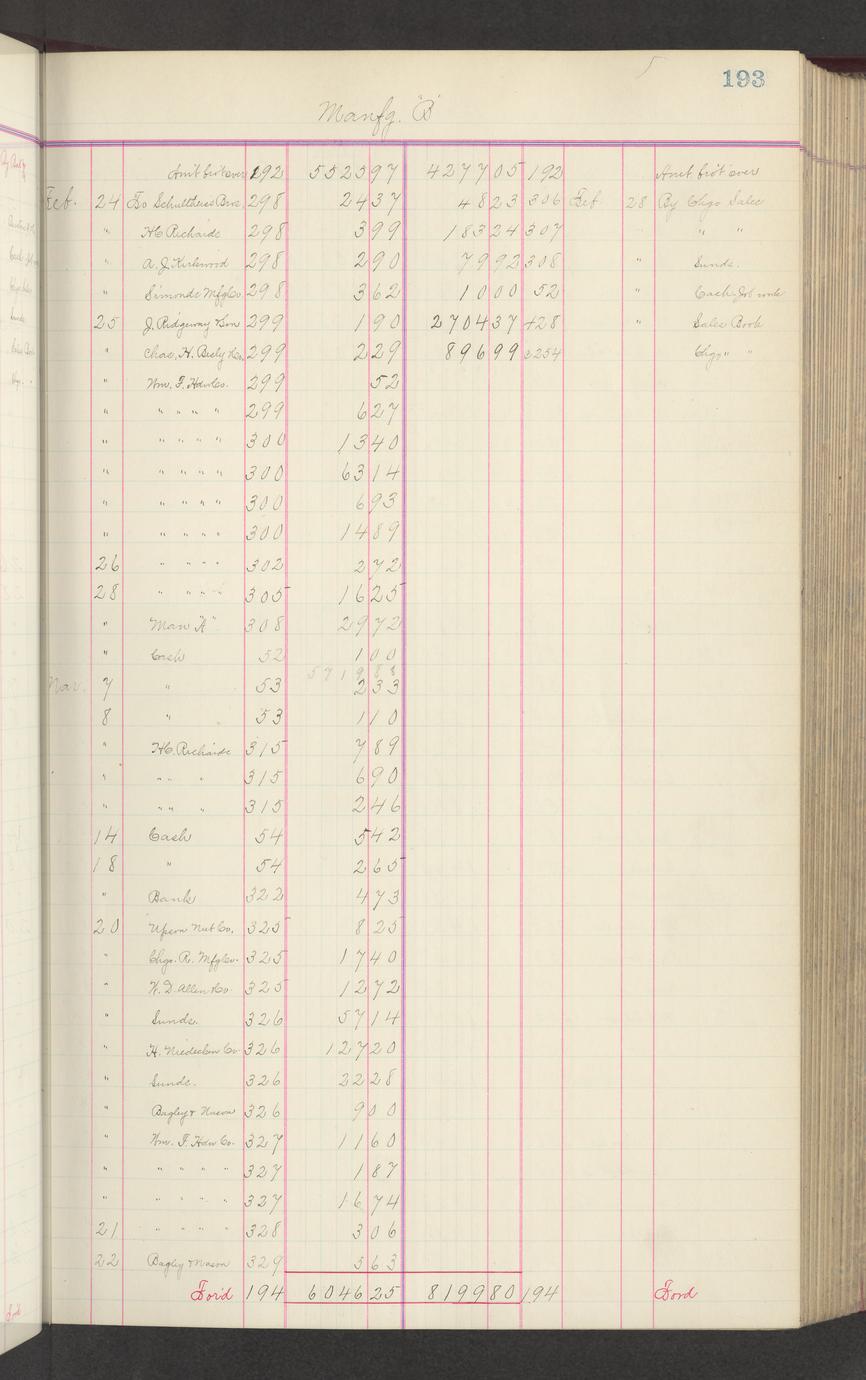 193
Manfg. "B"
Am't bro't over 192 5525 97 4277 05 192 Am't bro't over
Feb. 24 To Schultheis Bros. 298 24 37 48 23 306 Feb 28 By Chgo Sales
" H C Richards 298 3 99 183 24 307 " "
" A. J. Kirkwood 298 2 90 79 92 308 " Sunds.
" Simonds Mfg Co 298 3 62 10 00 52 " Cash Job work
25 J. Ridgeway & Son 299 1 90 2704 37 428 " Sales Book
" Chas. H. Besly & Co. 299 2 29 896 99 254 Chgo " "
" Wm. F. Hdw Co. 299 52
" " " " " 299 6 27
" " " " " 300 13 40
" " " " " 300 63 14
" " " " " 300 6 93
" " " " " 300 14 89
26 " " " " 302 2 72
28 " " " " 305 16 25
" Man "A" 308 29 72
" Cash 52 1 00
5719 88
Mar. 7 " 53 2 33
8 " 53 1 10
" H C. Richards 315 7 89
" " " " 315 6 90
" " " " 315 2 46
14 Cash 54 5 42
18 " 54 2 65
" Bank 322 4 73
20 Upson Nut Co. 325 8 25
" Chgo. R. Mfg Co. 325 17 40
" W. D. Allen & Co. 325 12 72
" Sunds. 326 57 14
" H. Niedecken Co. 326 127 20
" Sunds. 326 22 28
" Bagley & Nason 326 9 00
" Wm. F. Hdw Co. 327 11 60
" " " " " 327 1 87
" " " " " 327 16 74
21 " " " " 328 3 06
22 Bagley & Nason 329 5 63
For'd 194 6046 25 8199 80 194 Ford